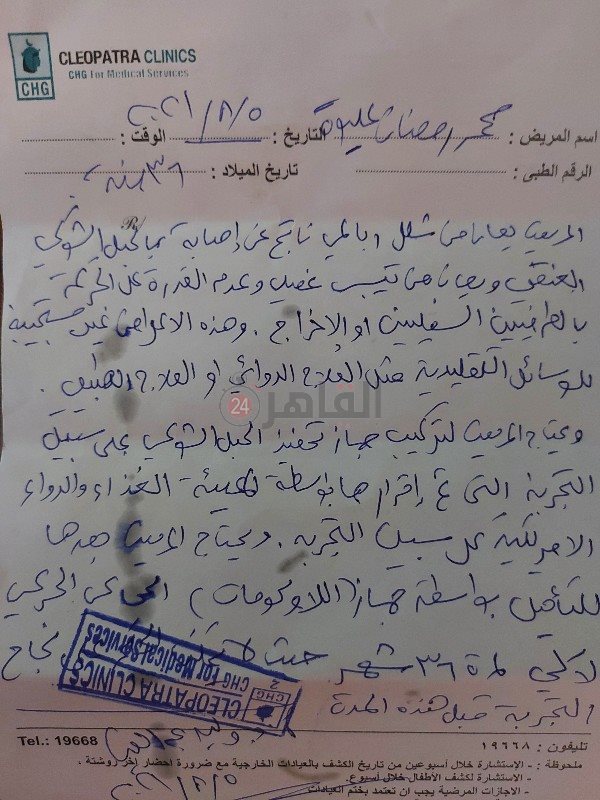 CLEOPATRA CLINICS
CHG For Medical Services
CHG
اسم المريض : محمد رمضان عليوة التاريخ : ٢٠٢١/٨/٥ الوقت :
الرقم الطبى : تاريخ الميلاد : ٣٦ سنة
R/
المريض يعاني من شلل رباعي ناتج عن إصابة بالحبل الشوكي
العنقي ويعاني من تيبس عضلي وعدم القدرة على الحركة
بالطرفيين السفليين او الإخراج . وهذه الاعراض غير مستجيبة
للوسائل التقليدية مثل العلاج الدوائي او العلاج الطبيعي .
القاهرة 24
ويحتاج المريض لتركيب جهاز تحفيز الحبل الشوكي على سبيل
التجربة التي تم إقرارها بواسطة هيئة الغذاء والدواء
الامريكية على سبيل التجربة . ويحتاج المريض بعدها
للتأهيل بواسطة جهاز ( اللاوكومات ) الحركي
لمدة ٣٦ شهر حيث نجاح
التجربة قبل هذه المدة
CLEOPATRA CLINICS
CHG For Medical Services
CHG
2
Tel.: 19668 تليفون : ١٩٦٦٨
ملحوظة : - الاستشارة خلال أسبوعين من تاريخ الكشف بالعيادات الخارجية مع ضرورة احضار اخر روشتة .
- الاستشارة لكشف الاطفال خلال أسبوع.
- الاجازات المرضية يجب ان تعتمد بختم العيادات